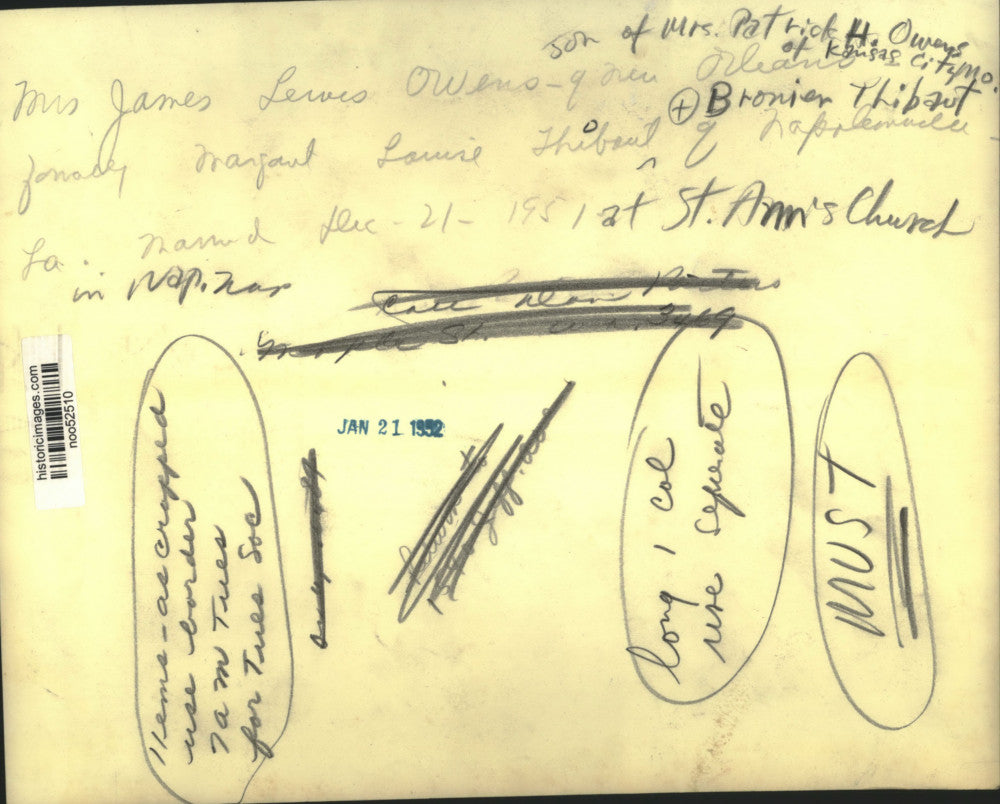 son of Mrs. Patrick H. Owens
of Kansas City, Mo.
Mrs James Lewis Owens - of New Orleans
+ Bronier Thibaut
Margaret Louise Thibaut of Napoleonville
La. Married Dec - 21 - 1951 at St. Ann's Church
in Nap.
Call
Maple St.
historicimages.com
noo52510
JAN 21 1952
11 ems - as cropped
use border
7 am Tues
for Tues Soc
long 1 col
use seperate
MUST